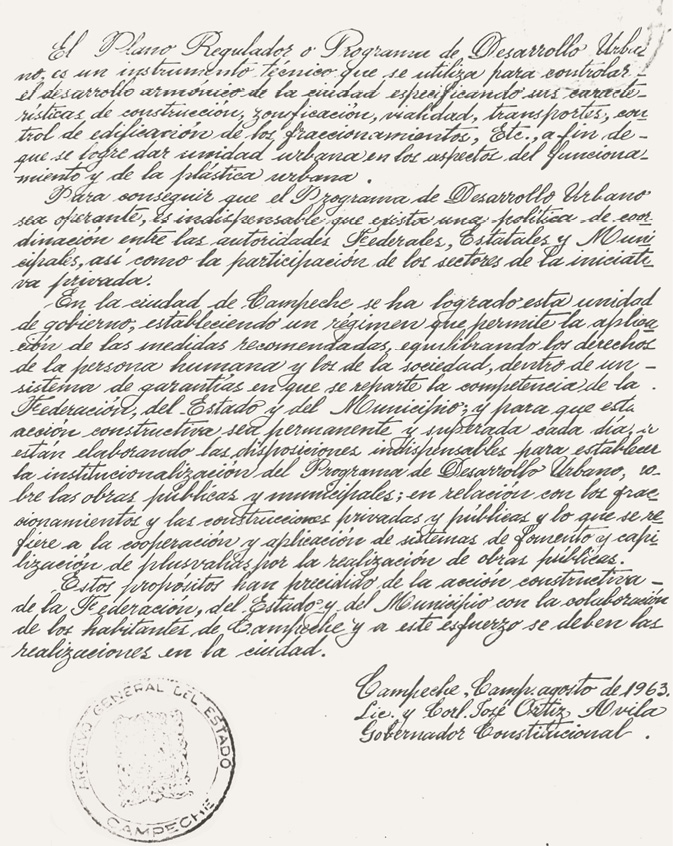 El Plano Regulador o Programa de Desarrollo Urba
no, es un instrumento técnico que se utiliza para controlar
el desarrollo armónico de la ciudad especificando sus caracte-
rísticas de construcción, zonificación, vialidad, transportes, con
trol de edificación de los fraccionamientos, Etc., a fin de-
que se logre dar unidad urbana en los aspectos del funciona-
miento y de la plástica urbana.
Para conseguir que el Programa de Desarrollo Urbano
sea operante, es indispensable que exista una política de coor
dinación entre las autoridades Federales, Estatales y Muni
cipales, así como la participación de los sectores de la iniciati
va privada.
En la ciudad de Campeche se ha logrado esta unidad
de gobierno, estableciendo un régimen que permite la aplica
ción de las medidas recomendadas, equilibrando los derechos
de la persona humana y los de la sociedad, dentro de un-
sistema de garantías en que se reparte la competencia de la
Federación, del Estado y del Municipio; y para que esta
acción constructiva sea permanente y superada cada día, se
están elaborando las disposiciones indispensables para establecer
la institucionalización del Programa de Desarrollo Urbano, so-
bre las obras públicas y municipales; en relación con los frac-
cionamientos y las construcciones privadas y públicas y lo que se re
fiere a la cooperación y aplicación de sistemas de fomento y capi-
lización de plusvalías por la realización de obras públicas.
Estos propósitos han presidido de la acción constructiva-
de la Federación, del Estado y del Municipio con la colaboración
de los habitantes de Campeche y a este esfuerzo se deben las
realizaciones en la ciudad.
Campeche, Camp. agosto de 1963.
Lic. y Corl. José Ortiz Avila
Gobernador Constitucional.
ARCHIVO GENERAL DEL ESTADO
CAMPECHE